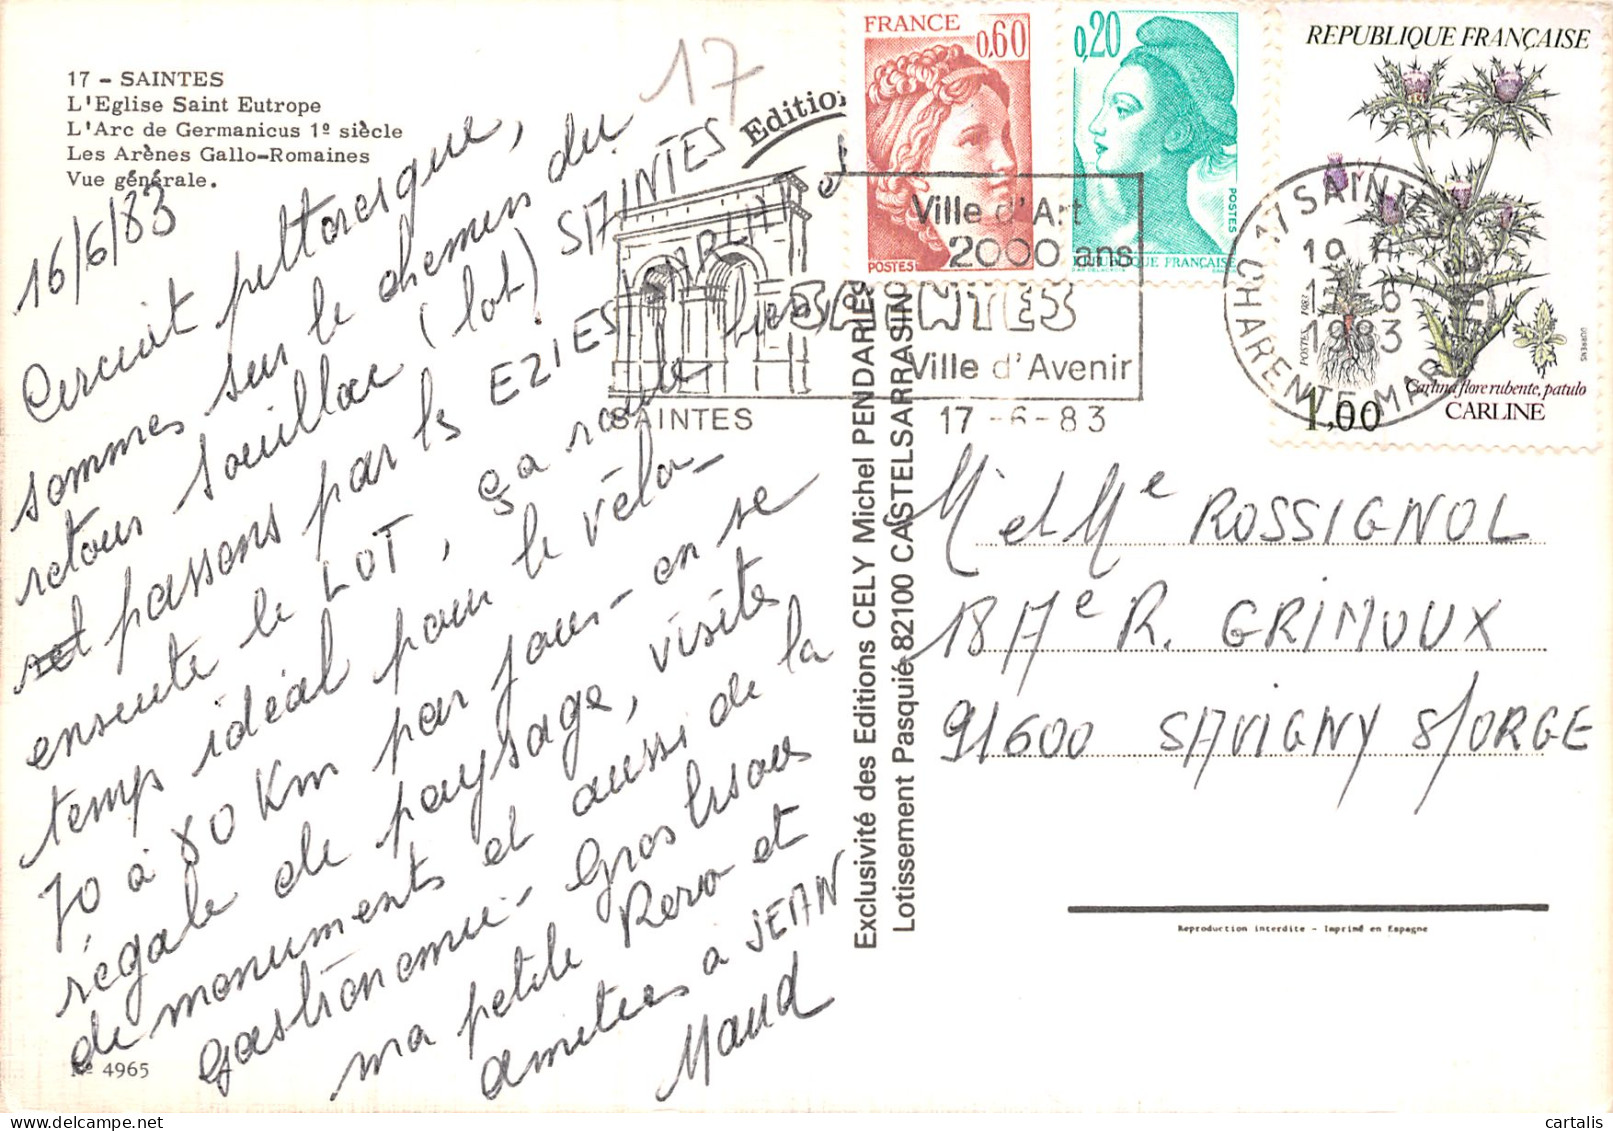 17 - SAINTES
L'Eglise Saint Eutrope
L'Arc de Germanicus 1º siècle
Les Arènes Gallo-Romaines
Vue générale.
17
16/6/83
Circuit pittoresque,
sommes sur le chemin du
retour Souillac (lot) SAINTES
et passons par les EZIES SARLAT et
ensuite le LOT, ça roule bien,
temps idéal pour le vélo_
70 à 80 Km par jour - on se
régale de paysage, visite
de monuments et aussi de la
gastronomie - Gros bisous
ma petite Rero et
amitiés a JEAN
Maud
Nº 4965
Edition
Exclusivité des Editions CELY Michel PENDARIES
Lotissement Pasquié 82100 CASTELSARRASIN
FRANCE
0,60
POSTES
0,20
POSTES
REPUBLIQUE FRANÇAISE
REPUBLIQUE FRANÇAISE
POSTES 1983
DURRENS
Carlina flore rubente, patulo
CARLINE
1,00
Ville d'Art
2000 ans
SAINTES
Ville d'Avenir
SAINTES
17-6-83
17 SAINTES
19 H
17 6
1983
CHARENTE-MARITIME
Mr et Me ROSSIGNOL
18 Ae R. GRIMOUX
91600 SAVIGNY S/ORGE
Reproduction interdite - Imprimé en Espagne
cartalis
delcampe.net